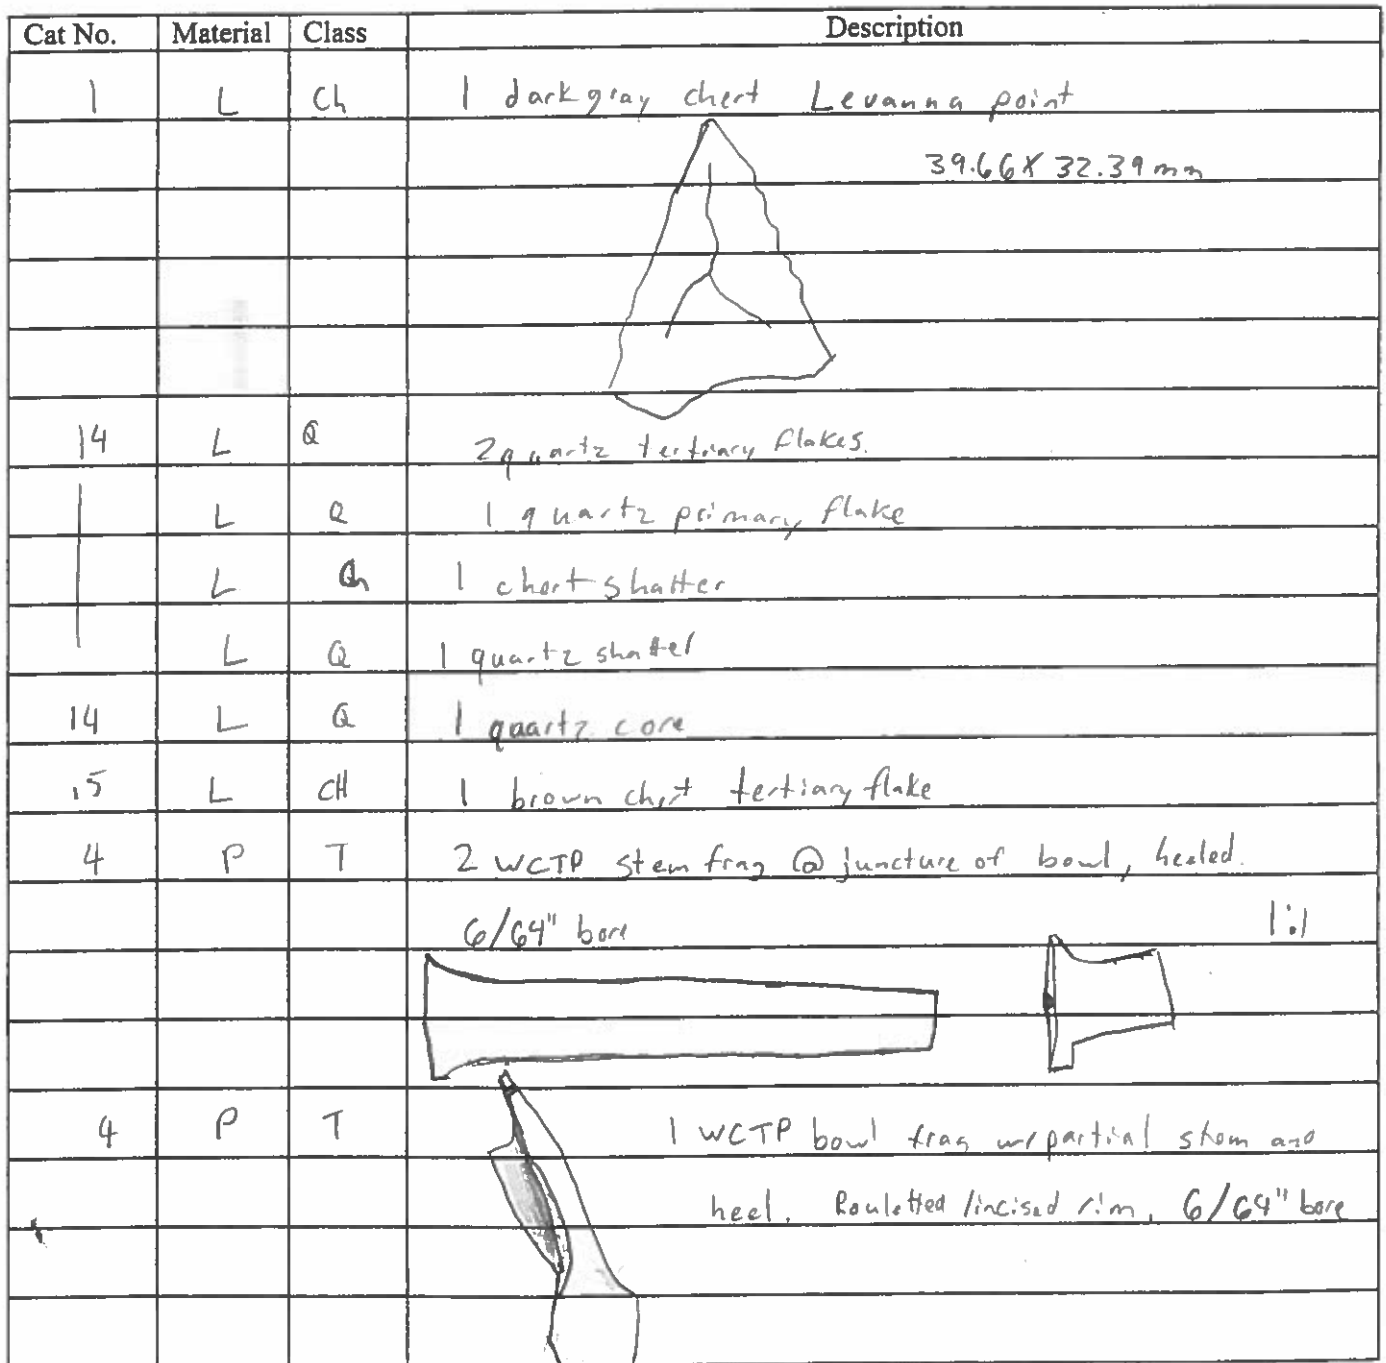 Cat No. Material Class Description
1 L Ch 1 dark gray chert Levanna point
39.66 X 32.39 mm
14 L Q 2 quartz tertiary flakes.
L Q 1 quartz primary flake
L Ch 1 chert shatter
L Q 1 quartz shatter
14 L Q 1 quartz core
15 L CH 1 brown chert tertiary flake
4 P T 2 WCTP stem frag @ juncture of bowl, heeled.
6/64" bore 1:1
4 P T 1 WCTP bowl frag w/partial stem and
heel. Rouletted/incised rim, 6/64" bore